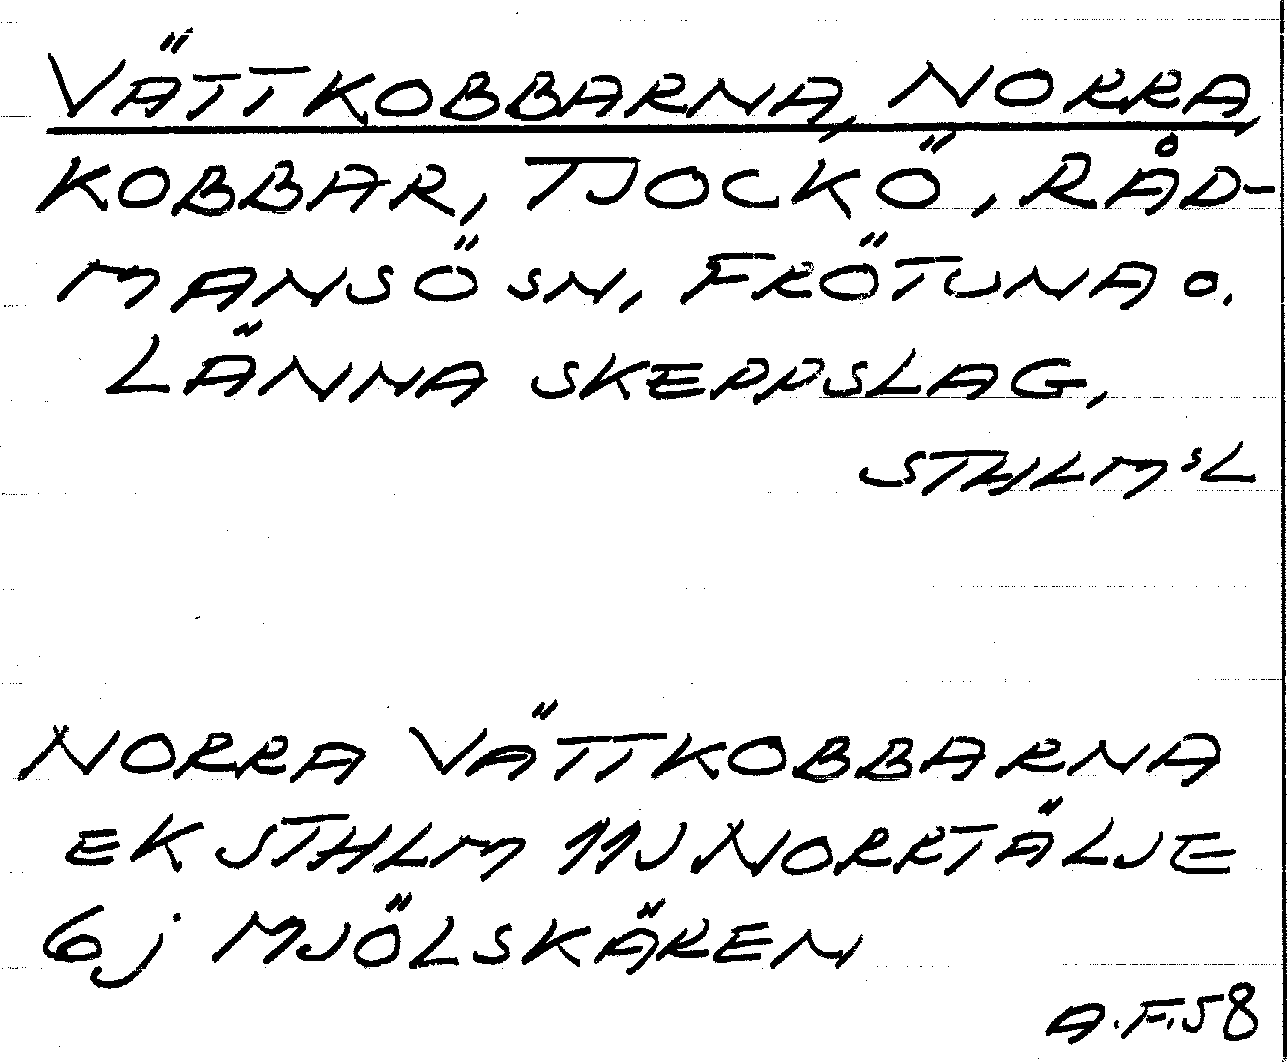 VÄTTKOBBARNA, NORRA,
KOBBAR, TJOCKÖ, RÅD-
MANSÖ SN, FRÖTUNA o.
LÄNNA SKEPPSLAG,
STHLMˢL
NORRA VÄTTKOBBARNA
EK STHLM 11J NORRTÄLJE
6j MJÖLSKÄREN
A.F.58